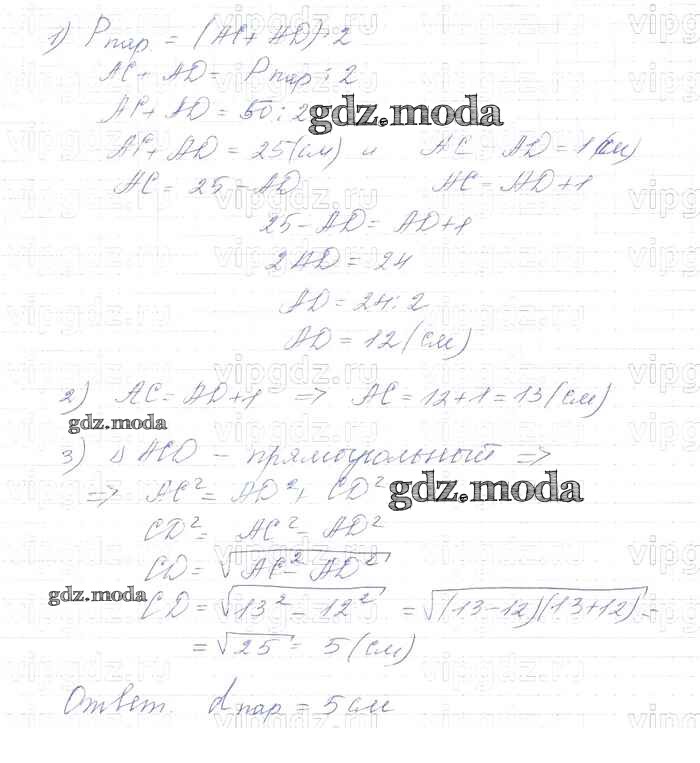 1) Pпар. = (AC + AD)·2
AC + AD = Pпар : 2
AC + AD = 50 : 2
gdz.moda
AC + AD = 25 (см) и AC - AD = 1 (см)
AC = 25 - AD AC = AD + 1
25 - AD = AD + 1
2AD = 24
AD = 24 : 2
AD = 12 (см)
2) AC = AD + 1 => AC = 12 + 1 = 13 (см)
gdz.moda
3) △ ACD - прямоугольный =>
=> AC² = AD² + CD²
gdz.moda
CD² = AC² - AD²
CD = √AC² - AD²
gdz.moda
CD = √13² - 12² = √(13-12)(13+12) =
= √25 = 5 (см)
Ответ. dпар = 5 см
vipgdz.ru